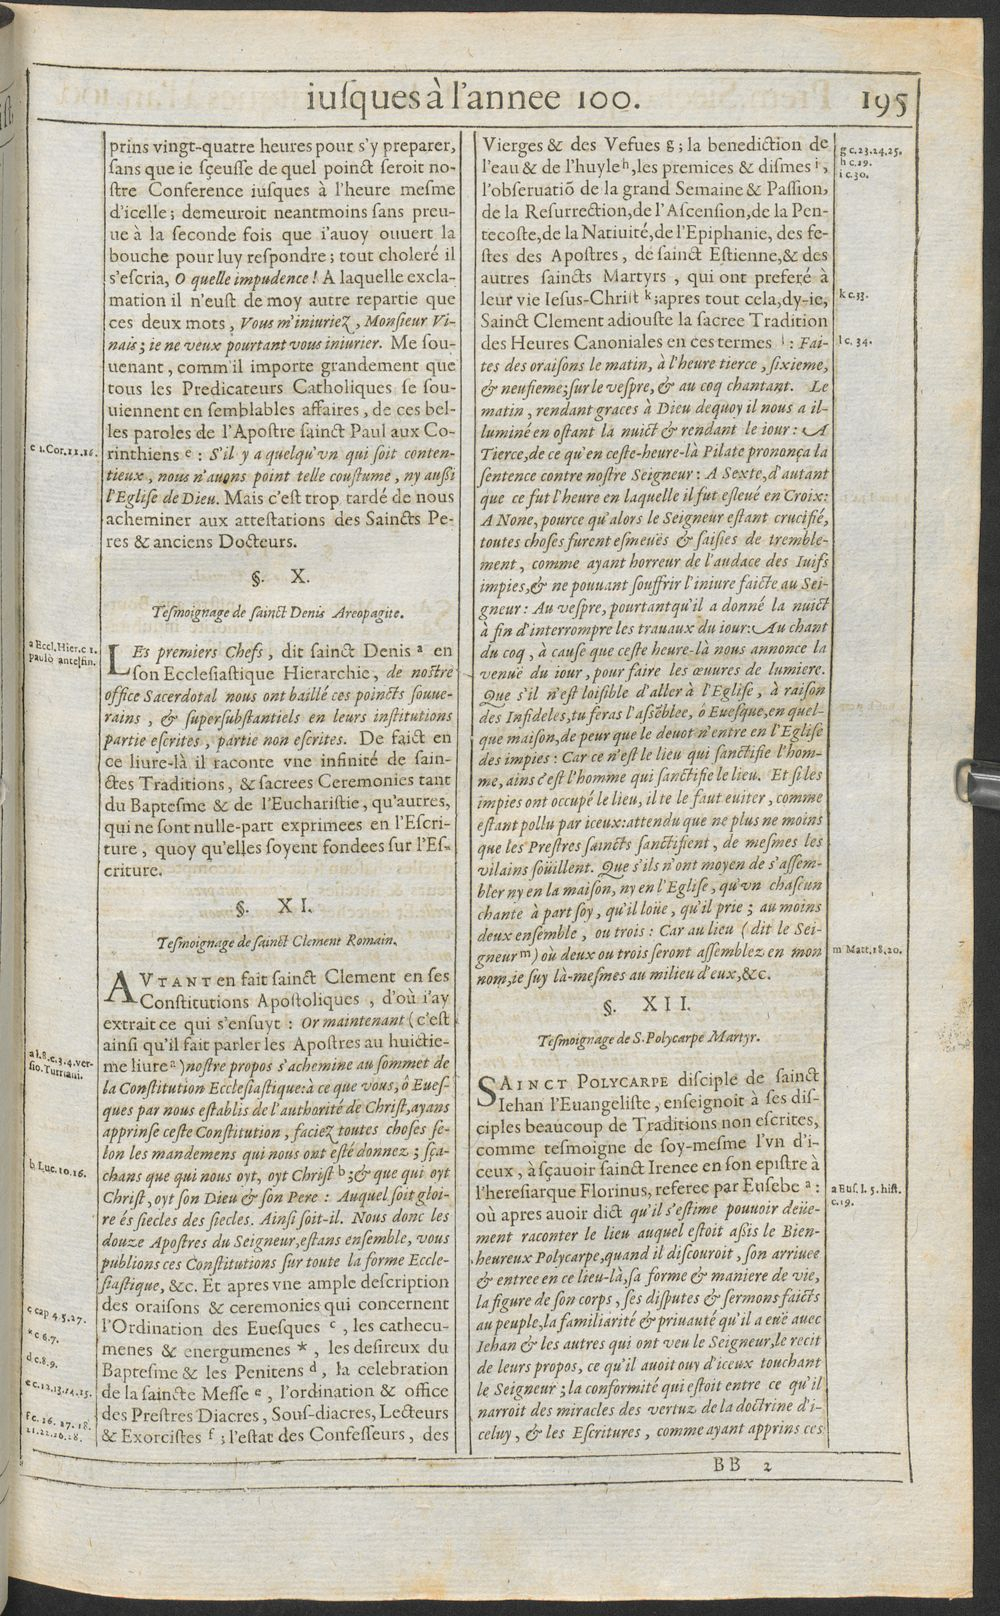 iusques à l'annee 100.
195
prins vingt-quatre heures pour s'y preparer,
sans que ie sçeusse de quel poinct seroit no-
stre Conference iusques à l'heure mesme
d'icelle; demeuroit neantmoins sans preu-
ue à la seconde fois que i'auoy ouuert la
bouche pour luy respondre; tout choleré il
s'escria, O quelle impudence! A laquelle excla-
mation il n'eust de moy autre repartie que
ces deux mots, Vous m'iniuriez, Monsieur Vi-
nais; ie ne veux pourtant vous iniurier. Me sou-
uenant, comm'il importe grandement que
tous les Predicateurs Catholiques se sou-
uiennent en semblables affaires, de ces bel-
les paroles de l'Apostre sainct Paul aux Co-
rinthiens c : S'il y a quelqu'vn qui soit conten-
tieux, nous n'auons point telle coustume, ny aussi
l'Eglise de Dieu. Mais c'est trop tardé de nous
acheminer aux attestations des Saincts Pe-
res & anciens Docteurs.
c 1.Cor.11.16.
§. X.
Tesmoignage de sainct Denis Areopagite.
LEs premiers Chefs, dit sainct Denis a en
son Ecclesiastique Hierarchie, de nostre
office Sacerdotal nous ont baillé ces poincts souue-
rains, & supersubstantiels en leurs institutions
partie escrites, partie non escrites. De faict en
ce liure-là il raconte vne infinité de sain-
ctes Traditions, & sacrees Ceremonies tant
du Baptesme & de l'Eucharistie, qu'autres,
qui ne sont nulle-part exprimees en l'Escri-
ture, quoy qu'elles soyent fondees sur l'Es-
criture.
a Eccl.Hier.c 1.
paulò ante fin.
§. XI.
Tesmoignage de sainct Clement Romain.
AVTANT en fait sainct Clement en ses
Constitutions Apostoliques, d'où i'ay
extrait ce qui s'ensuyt : Or maintenant (c'est
ainsi qu'il fait parler les Apostres au huictie-
me liure a) nostre propos s'achemine au sommet de
la Constitution Ecclesiastique: à ce que vous, ô Eues-
ques par nous establis de l'authorité de Christ, ayans
apprinse ceste Constitution, faciez toutes choses se-
lon les mandemens qui nous ont esté donnez; sça-
chans que qui nous oyt, oyt Christ b; & que qui oyt
Christ, oyt son Dieu & son Pere : Auquel soit gloi-
re és siecles des siecles. Ainsi soit-il. Nous donc les
douze Apostres du Seigneur, estans ensemble, vous
publions ces Constitutions sur toute la forme Eccle-
siastique, &c. Et apres vne ample description
des oraisons & ceremonies qui concernent
l'Ordination des Euesques c, les cathecu-
menes & energumenes *, les desireux du
Baptesme & les Penitens d, la celebration
de la saincte Messe e, l'ordination & office
des Prestres Diacres, Sous-diacres, Lecteurs
& Exorcistes f; l'estat des Confesseurs, des
a l.8.c.3.4.ver-
sio.Turriani.
b Luc.10.16.
c cap 4.5.27.
* c 6.7.
d c.8.9.
e c.12.13.14.15.
f c. 16. 17. 18.
21.22.26.28.
Vierges & des Vefues g; la benediction de
l'eau & de l'huyle h, les premices & dismes i,
l'obseruatiõ de la grand Semaine & Passion,
de la Resurrection, de l'Ascension, de la Pen-
tecoste, de la Natiuité, de l'Epiphanie, des fe-
stes des Apostres, de sainct Estienne, & des
autres saincts Martyrs, qui ont preferé à
leur vie Iesus-Christ k; apres tout cela, dy-ie,
Sainct Clement adiouste la sacree Tradition
des Heures Canoniales en ces termes l : Fai-
tes des oraisons le matin, à l'heure tierce, sixieme,
& neufieme; sur le vespre, & au coq chantant. Le
matin, rendant graces à Dieu dequoy il nous a il-
luminé en ostant la nuict & rendant le iour : A
Tierce, de ce qu'en ceste-heure-là Pilate prononça la
sentence contre nostre Seigneur : A Sexte, d'autant
que ce fut l'heure en laquelle il fut esleué en Croix:
A None, pource qu'alors le Seigneur estant crucifié,
toutes choses furent esmeuës & saisies de tremble-
ment, comme ayant horreur de l'audace des Iuifs
impies, & ne pouuant souffrir l'iniure faicte au Sei-
gneur : Au vespre, pourtant qu'il a donné la nuict
à fin d'interrompre les trauaux du iour: Au chant
du coq, à cause que ceste heure-là nous annonce la
venuë du iour, pour faire les œuures de lumiere.
Que s'il n'est loisible d'aller à l'Eglise, à raison
des Infideles, tu feras l'assẽblee, ô Euesque, en quel-
que maison, de peur que le deuot n'entre en l'Eglise
des impies : Car ce n'est le lieu qui sanctifie l'hom-
me, ains c'est l'homme qui sanctifie le lieu. Et si les
impies ont occupé le lieu, il te le faut euiter, comme
estant pollu par iceux: attendu que ne plus ne moins
que les Prestres saincts sanctifient, de mesmes les
vilains soüillent. Que s'ils n'ont moyen de s'assem-
bler ny en la maison, ny en l'Eglise, qu'vn chascun
chante à part soy, qu'il loüe, qu'il prie ; au moins
deux ensemble, ou trois : Car au lieu (dit le Sei-
gneur m) où deux ou trois seront assemblez en mon
nom, ie suy là-mesmes au milieu d'eux, &c.
g c.23.24.25.
h c.29.
i c.30.
k c.33.
l c. 34.
m Matt.18.20.
§. XII.
Tesmoignage de S. Polycarpe Martyr.
SAINCT POLYCARPE disciple de sainct
Iehan l'Euangeliste, enseignoit à ses dis-
ciples beaucoup de Traditions non escrites,
comme tesmoigne de soy-mesme l'vn d'i-
ceux, à sçauoir sainct Irenee en son epistre à
l'heresiarque Florinus, referee par Eusebe a :
où apres auoir dict qu'il s'estime pouuoir deüe-
ment raconter le lieu auquel estoit assis le Bien-
heureux Polycarpe, quand il discouroit, son arriuee
& entree en ce lieu-là, sa forme & maniere de vie,
la figure de son corps, ses disputes & sermons faicts
au peuple, la familiarité & priuauté qu'il a euë auec
Iehan & les autres qui ont veu le Seigneur, le recit
de leurs propos, ce qu'il auoit ouy d'iceux touchant
le Seigneur ; la conformité qui estoit entre ce qu'il
narroit des miracles des vertuz de la doctrine d'i-
celuy, & les Escritures, comme ayant apprins ces
a Eus. l. 5. hist.
c.19.
BB 2